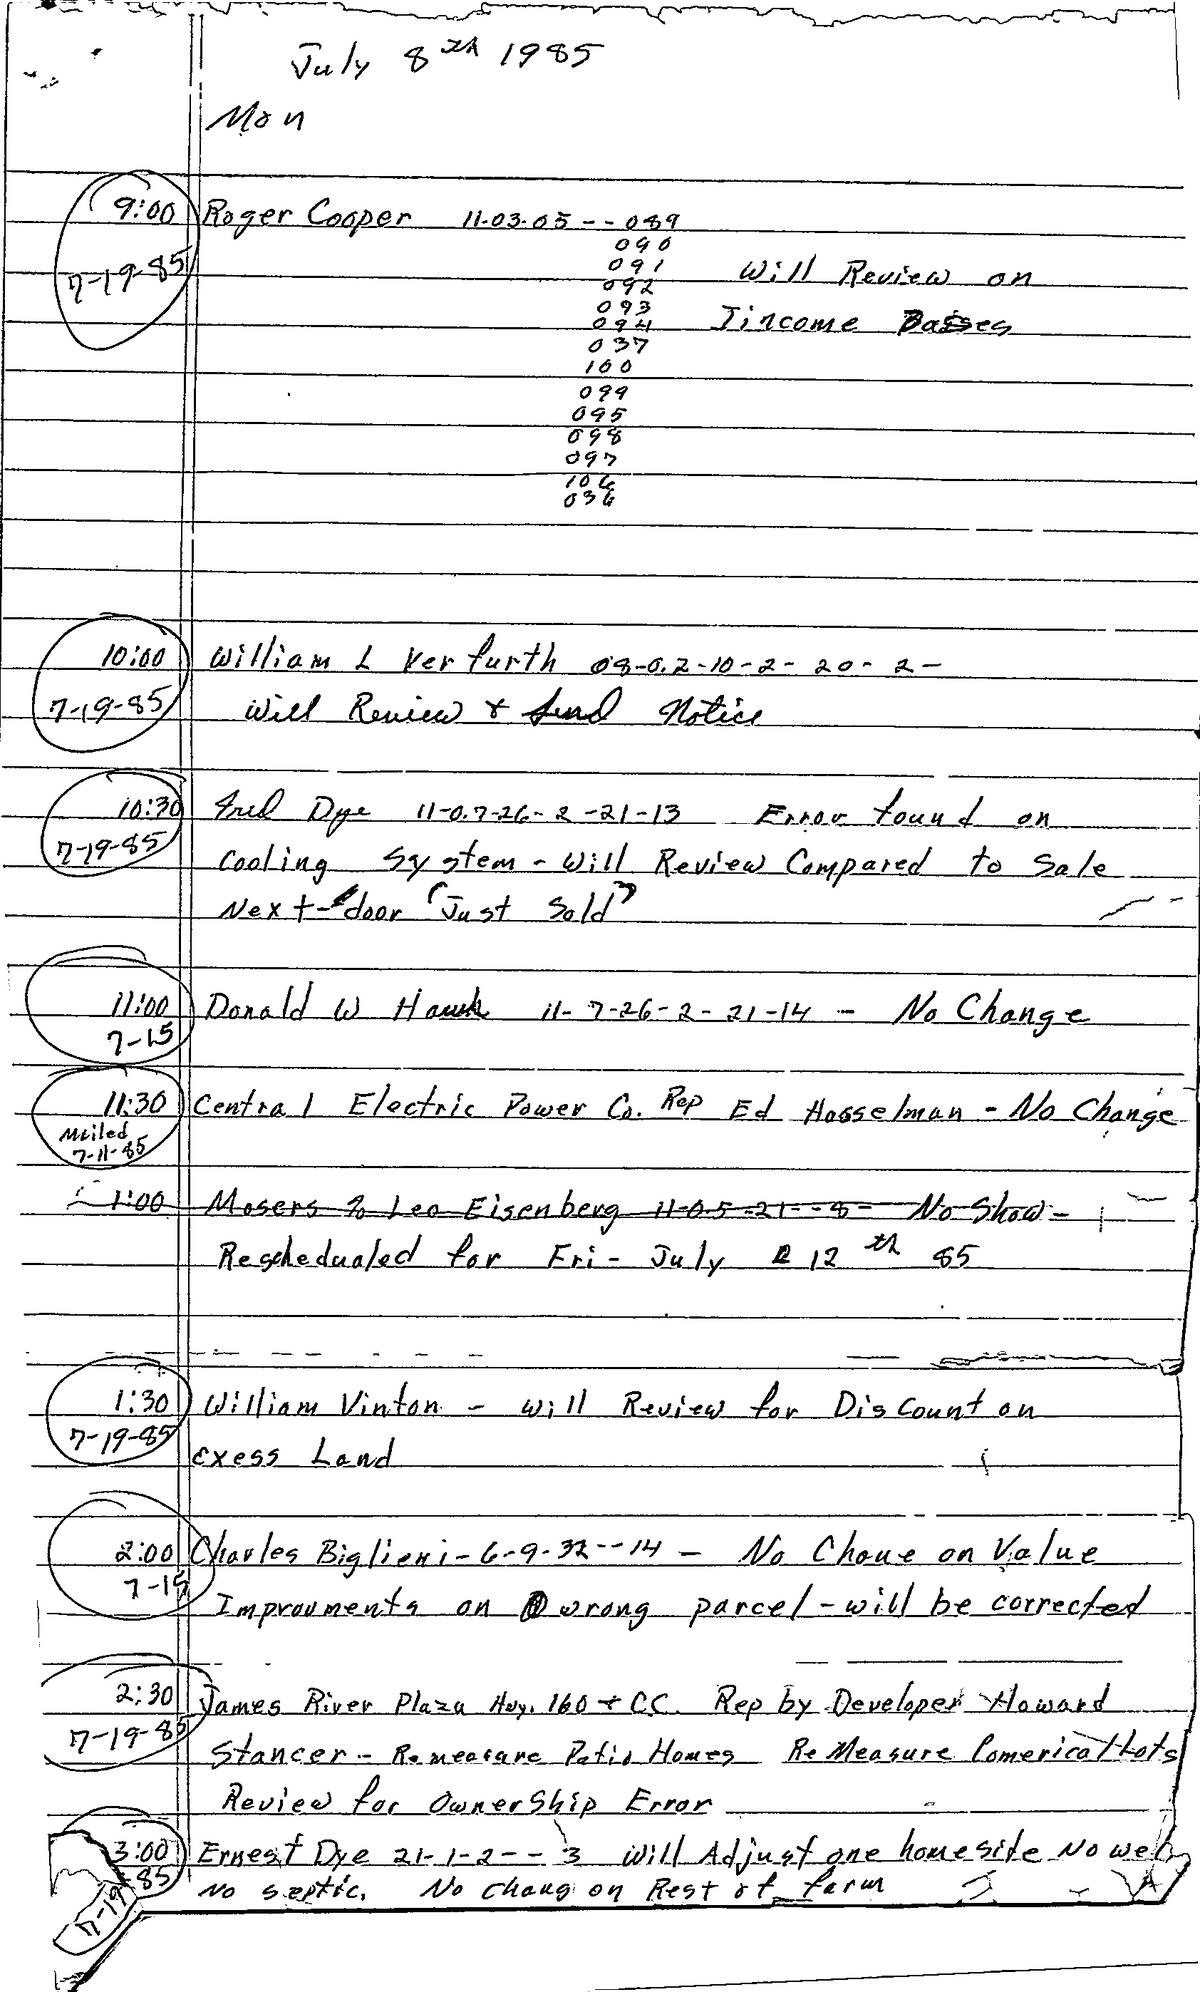 July 8th 1985
Mon
9:00 Roger Cooper 11-03-05---089
090
7-19-85 091 Will Review on
092
093
094 Iincome Basses
037
100
099
095
098
097
106
036
10:00 William L Verfurth 08-0.2-10-2-20-2-
7-19-85 Will Review & Send Notice
10:30 Fred Dye 11-0.7-26-2-21-13 Error found on
7-19-85 Cooling System - Will Review Compared to Sale
Next-door "Just Sold"
11:00 Donald W Hawk 11-7-26-2-21-14 - No Change
7-15
11:30 Central Electric Power Co. Rep Ed Hasselman - No Change
Mailed
7-11-85
1:00 Mosers % Leo Eisenberg 11-0.5-21--8- No Show -
Reschedualed for Fri - July 12th 85
1:30 William Vinton - Will Review for Discount on
7-19-85 exess Land
2:00 Charles Biglieni - 6-9-32--14 - No Chane on Value
7-15 Improuments on wrong parcel - will be corrected
2:30 James River Plaza Hwy. 160 + CC. Rep by Developer Howard
7-19-85 Stancer - Remeasure Patio Homes ReMeasure Comerical Lots
Review for OwnerShip Error
3:00 Ernest Dye 21-1-2--3 Will Adjust one homesite No well
7-19-85 No septic. No Chang on Rest of farm